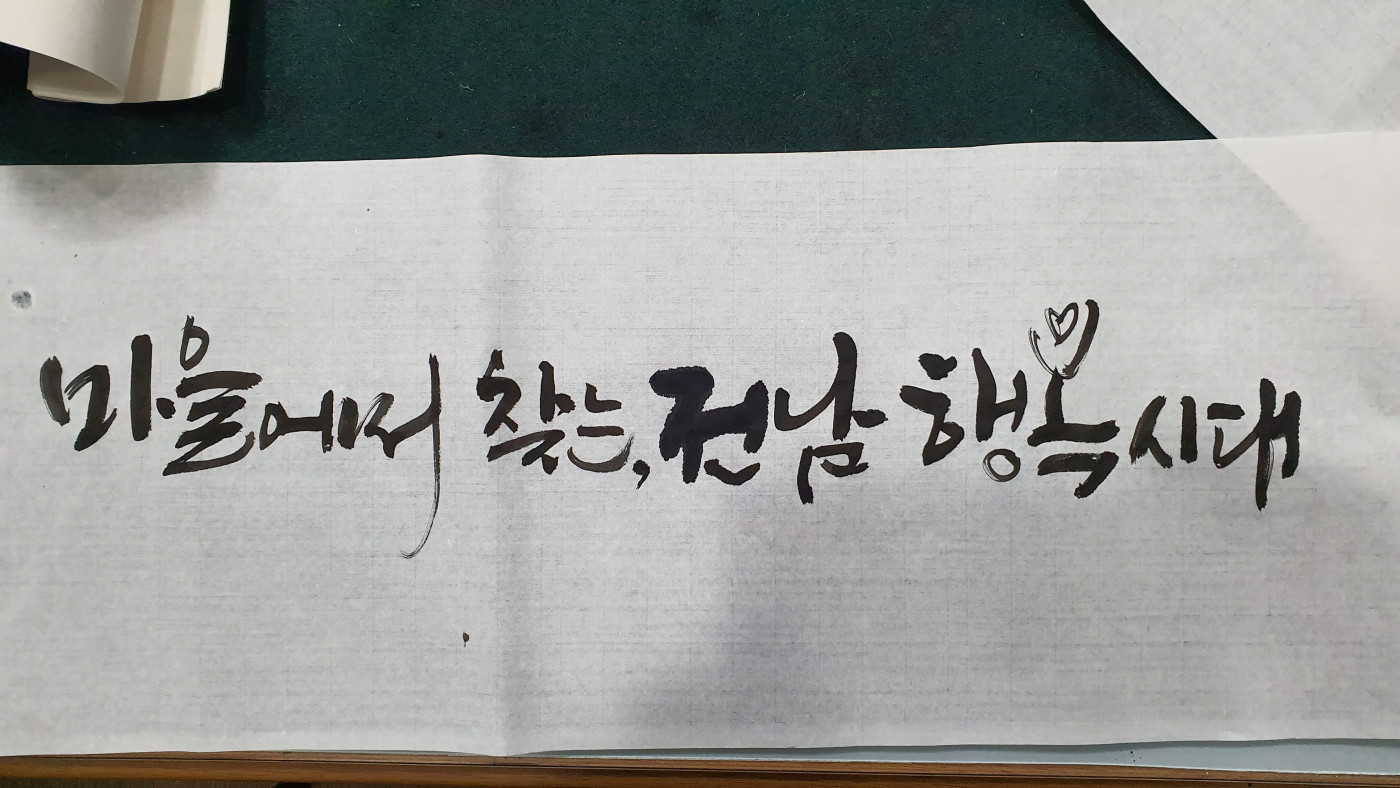 마을에서 찾는, 전남 행복시대